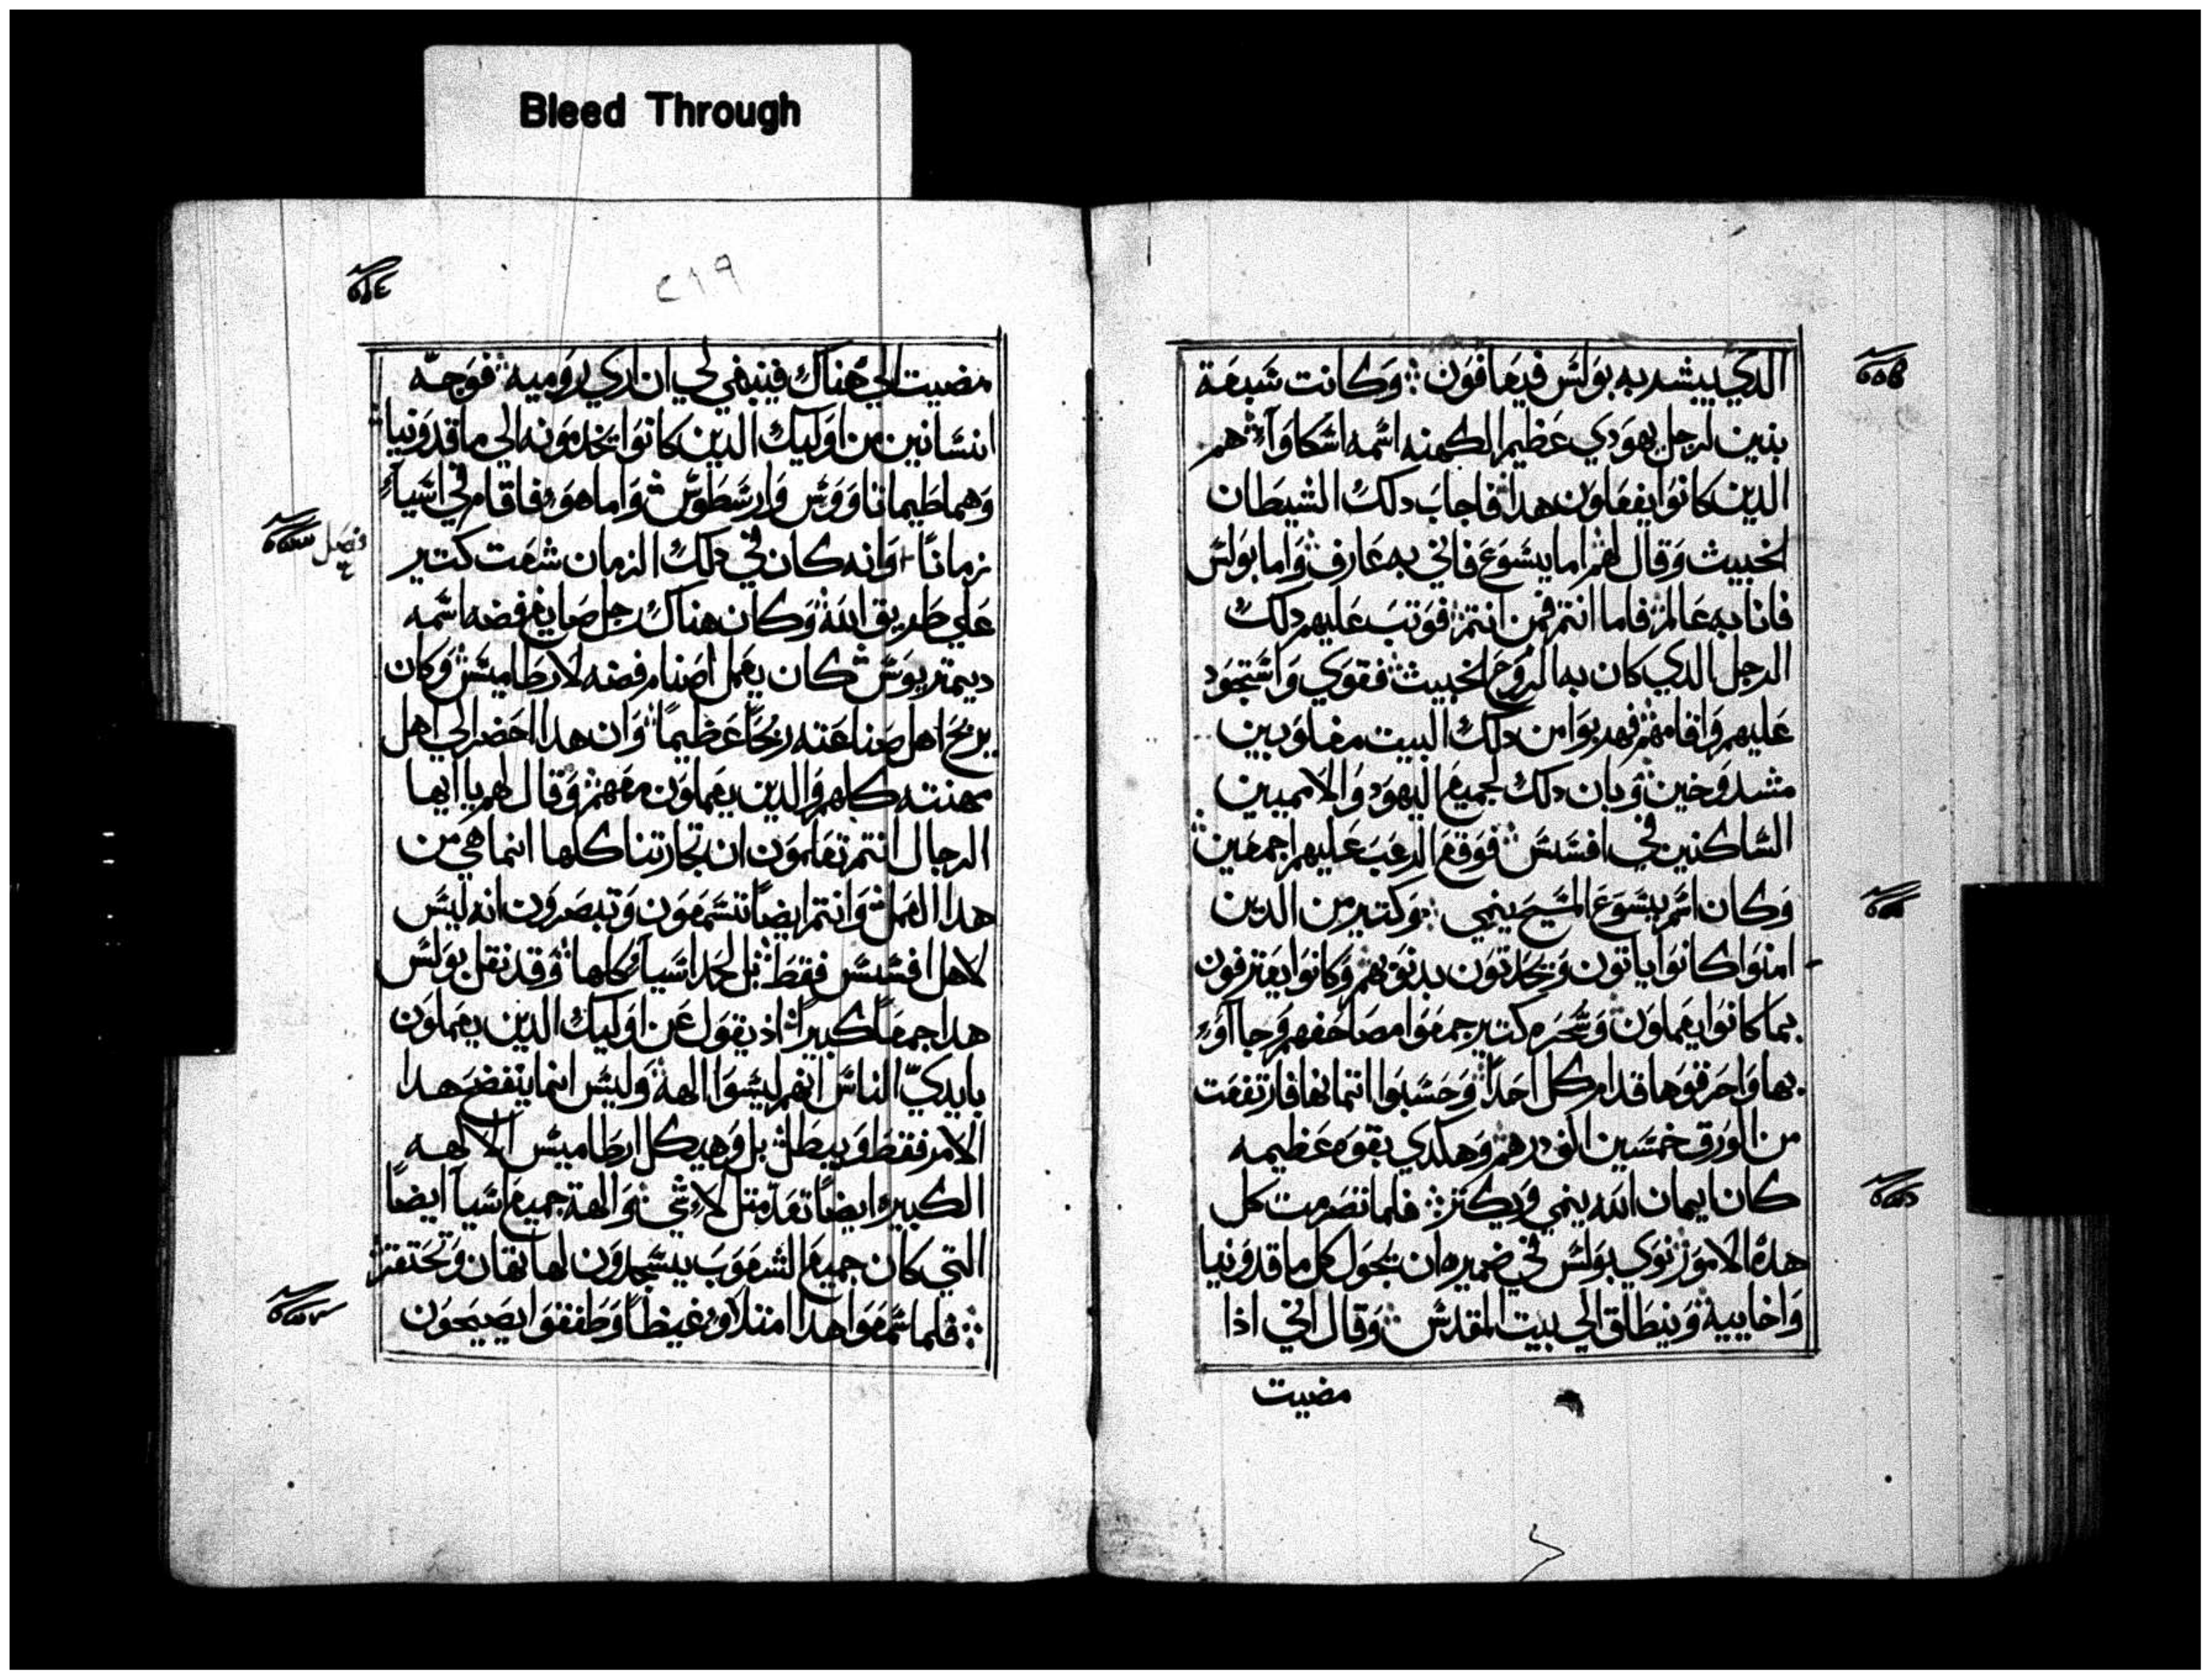 Bleed Through
الدي يبشر به بولس فيعافون ؞ وكانت شبعة
بنين لرجل يهودي عظيم الكهنه اسمه اسكاوآ؞ هم
الدين كانوا يفعلون هدا؞ فاجاب دلك الشيطان
الخبيث وقال لهم اما يسوع فاني به عارف؞ واما بولس
فانا به عالم؞ فاما انتم فمن انتم؞ فوتب عليهم دلك
الرجل الدي كان به الروح الخبيث؞ فقوي واستحود
عليهم واقامهم؞ فهربوا من دلك البيت مغلوبين
مشدوخين؞ وبان دلك لجميع اليهود والامميين
الساكنين في افسس؞ فوقع الرعب عليهم اجمعين؞
وكان اسم يسوع المسيح ينمي ؞ وكتير من الدين
امنوا كانوا ياتون ويحدتون بدنوبهم وكانوا يعترفون
بما كانوا يعملون؞ وسحره كتير جمعوا مصاحفهم وجاآو
بها واحرقوها قدام كل احد؞ وحسبوا اتمانها فارتفعت
من الورق خمسين الف درهم؞ وهكدي بقوه عظيمه
كان ايمان الله ينمي ويكتر؞ فلما تصرمت كل
هده الامور؞ نوي بولس في ضميره ان يجول كل ماقدونيا
واخاييه؞ وينطلق الي بيت المقدس؞ وقال اني ادا
مضيت
٤١٩
مضيت الي هناك فينبغي لي ان اري روميه؞ فوجه
انسانين من اوليك الدين كانوا يخدمونه الي ماقدونيا؞
وهما طيماتاووس وارسطوس؞ واما هو فاقام في اسيآ
زمانًا؞ وانه كان في دلك الزمان شغت كتير
فصل
علي طريق الله؞ وكان هناك رجل صايغ فضه اسمه
ديمتريوس؞ كان يعمل اصنام فضه لارطاميس؞ وكان
يربح اهل صناعته ربحًا عظيمًا؞ وان هدا احضر الي اهل
مهنته كلهم والدين يعملون معهم؞ وقال لهم يا ايها
الرجال انتم تعلمون ان تجارتنا كلها انما هي من
هدا العمل؞ وانتم ايضًا تسمعون وتبصرون انه ليس
لاهل افسس فقط؞ بل لحد اسيآ كلها؞ وقد نقل بولس
هدا جمعًا كبيرًا؞ اد يقول عن اوليك الدين يعملون
بايديّ الناس انهم ليسوا الهة؞ وليس انما ينفضح هدا
الامر فقط ويبطل؞ بل وهيكل ارطاميس الالهه
الكبيره ايضًا تعد متل لا شي؞ والهة جميع اسيآ ايضًا
التي كان جميع الشعوب يسجدون لها تهان وتحتقر؞
؞ فلما سمعوا هدا امتلاو غيظًا وطفقوا يصيحون